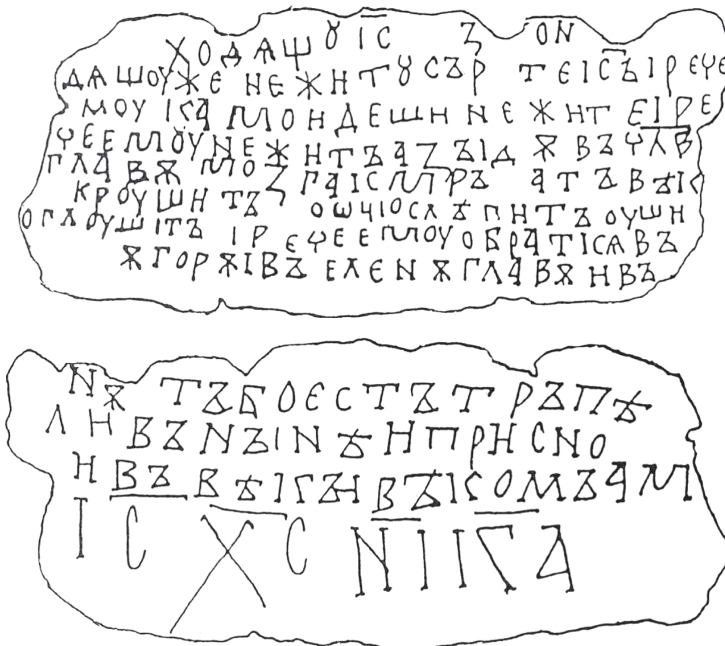 ХОДѦЩꙊ ІС З ОN
ДѦШОУЖЕ НЕЖНТꙊ СЪР ТЕІСЪІРЕЧЕ
МОУ ІСА МОНДЕШН НЕЖНТ ЕІРЕ
ЧЕЕМОУ НЕЖНТЪ АZЪІД Ѫ ВЪ ЧЛВ
ГЛАВѪ МОZГА ІСМРЪ АТЪ ВѢІС
КРОУШНТЪ ОѠЧІОСЛѢПНТЪ ОУШН
ОГЛОУШІТЪ ІРЕЧЕ ЕМОУ ОБРАТІСѦ ВЪ
ѪГОРѪІВЪ ЕЛЕNѪ ГЛАВѪ НВЪ
NѪ ТЪБО ЕСТЪ ТРЪПѢ
ЛН ВЪ NЪІNѢ Н ПРНСNО
Н ВЪ ВѢІГЪН ВѢІСОМЪ АМ
ІС ХС NІІСА